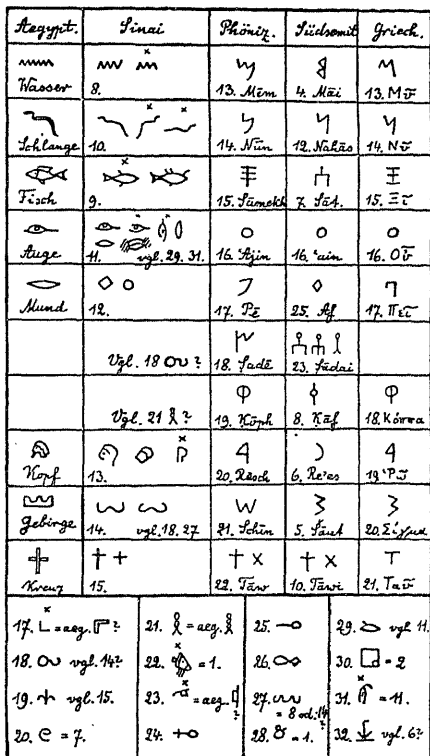 Aegypt. Sinai Phöniz. Südsemit. Griech.
Wasser 8. 13. Mēm 4. Māi 13. Μῦ
Schlange 10. 14. Nūn 12. Nahās 14. Νῦ
Fisch 9. 15. Sāmekh 7. Sāt. 15. Ξῖ
Auge 11. vgl. 29. 31. 16. ʿAjin 16. ʿain 16. Οὖ
Mund 12. 17. Pē 25. Af 17. Πεῖ
Vgl. 18 ? 18. Sadē 23. Sădai
Vgl. 21 ? 19. Kōph 8. Kāf 18. Κόππα
Kopf 13. 20. Rēsch 6. Re'es 19. Ῥῶ
Gebirge 14. vgl. 18. 27 21. Schīn 5. Saut 20. Σίγμα
Kreuz 15. 22. Tāw 10. Tāwi 21. Ταῦ
17. = aeg. ? 21. = aeg. 25. 29. vgl. 11.
18. vgl. 14? 22. = 1. 26. 30. = 2
19. vgl. 15. 23. = aeg. ? 27. = 8 od. 14? 31. = 11.
20. = 7. 24. 28. = 1. 32. vgl. 6?